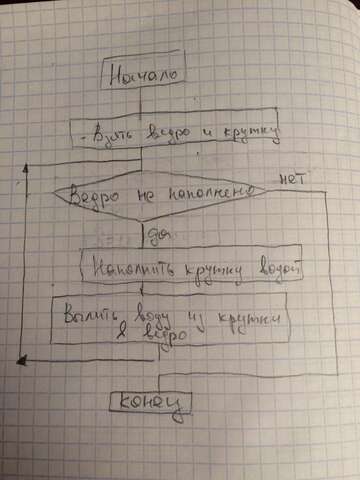 Начало
- Взять ведро и кружку
Ведро не наполнено
нет
да
Наполнить кружку водой
Вылить воду из кружки
в ведро
конец